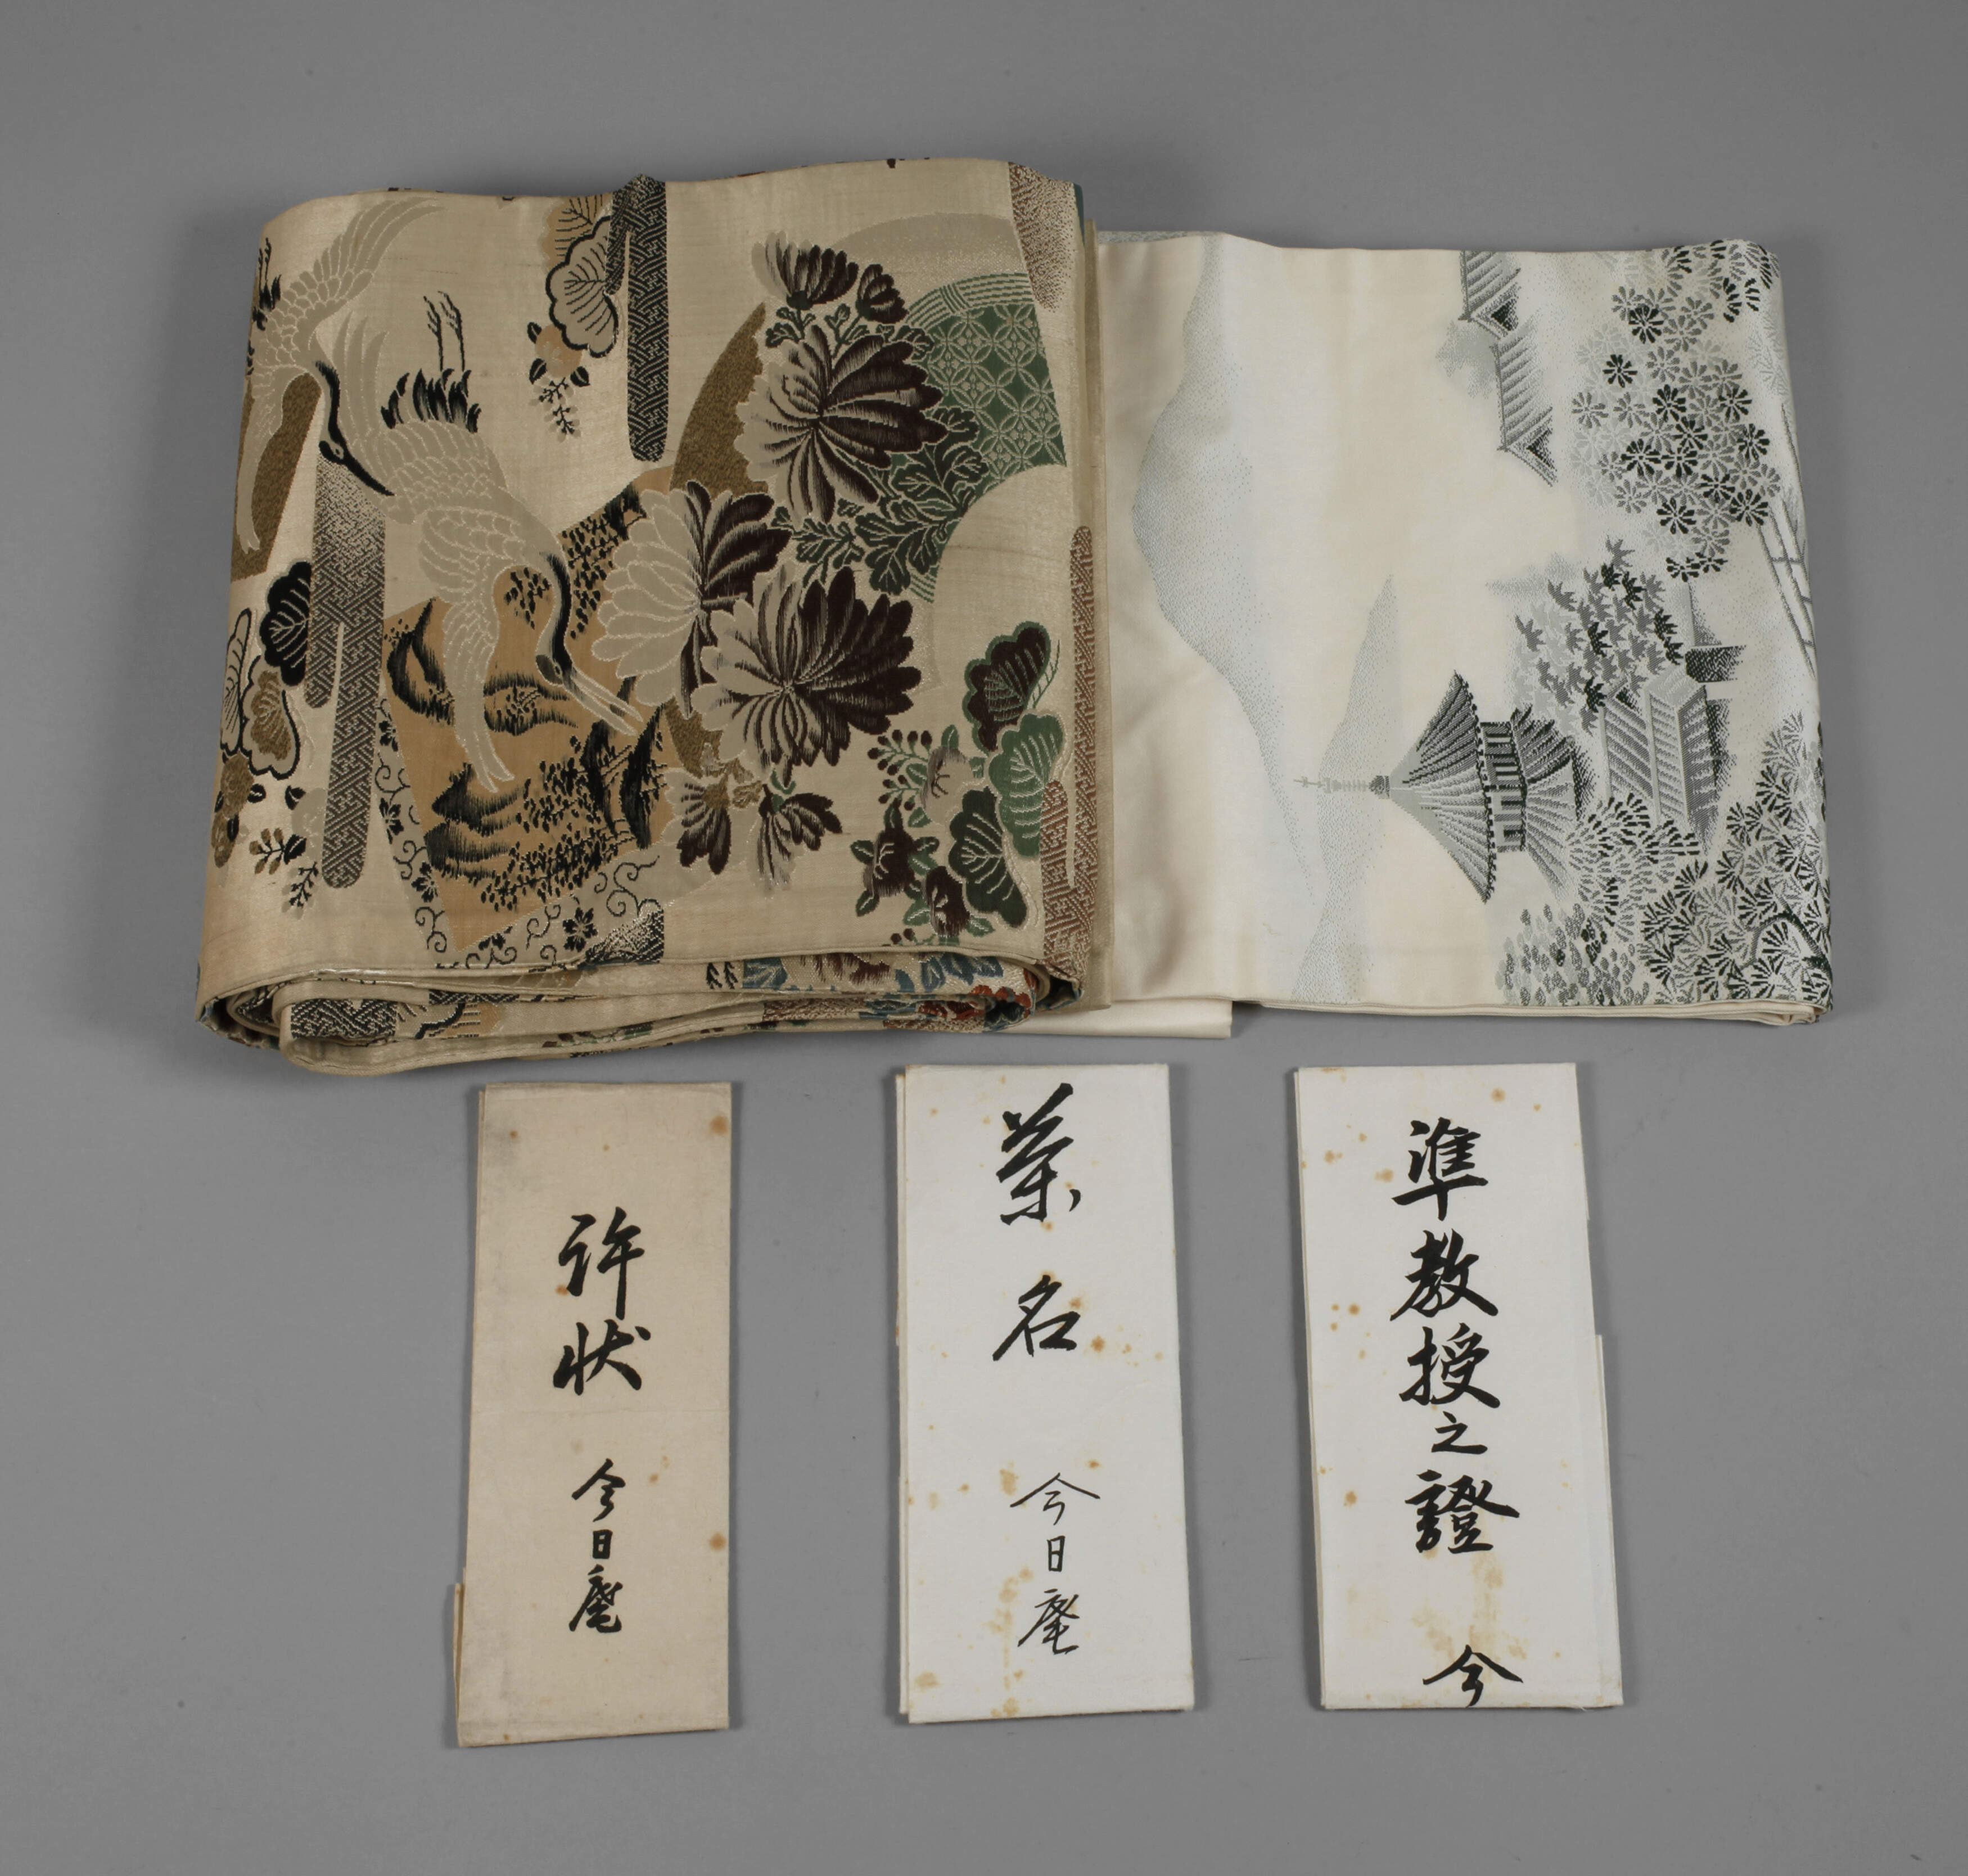 許状
今日庵
茶名
今日庵
準教授之證
今